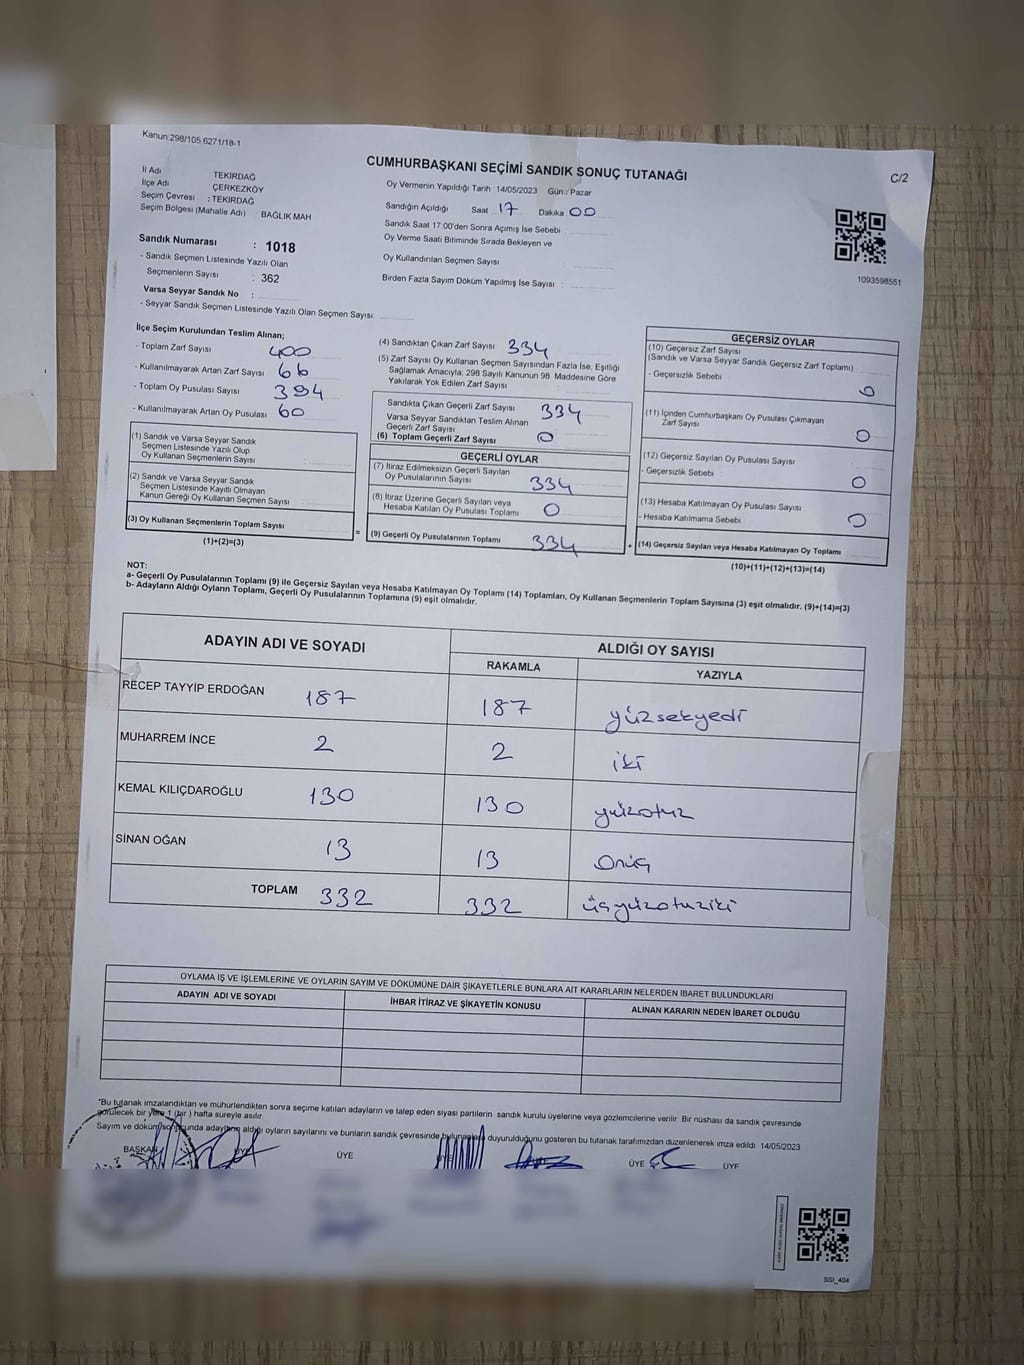 Kanun:298/105 6271/18-1
CUMHURBAŞKANI SEÇİMİ SANDIK SONUÇ TUTANAĞI
C/2
İl Adı : TEKİRDAĞ
İlçe Adı ÇERKEZKÖY
Seçim Çevresi : TEKİRDAĞ
Seçim Bölgesi (Mahalle Adı) BAĞLIK MAH
Sandık Numarası : 1018
- Sandık Seçmen Listesinde Yazılı Olan
Seçmenlerin Sayısı : 362
Varsa Seyyar Sandık No :
- Seyyar Sandık Seçmen Listesinde Yazılı Olan Seçmen Sayısı:
Oy Vermenin Yapıldığı Tarih 14/05/2023 Gün / Pazar
Sandığın Açıldığı Saat 17 Dakika 00
Sandık Saat 17:00'den Sonra Açımış İse Sebebi
Oy Verme Saati Bitiminde Sırada Bekleyen ve
Oy Kullandırılan Seçmen Sayısı
Birden Fazla Sayım Döküm Yapılmış İse Sayısı :
1093598551
İlçe Seçim Kurulundan Teslim Alınan;
- Toplam Zarf Sayısı 400
- Kullanılmayarak Artan Zarf Sayısı 66
- Toplam Oy Pusulası Sayısı 394
- Kullanılmayarak Artan Oy Pusulası 60
(1) Sandık ve Varsa Seyyar Sandık
Seçmen Listesinde Yazılı Olup
Oy Kullanan Seçmenlerin Sayısı :
(2) Sandık ve Varsa Seyyar Sandık
Seçmen Listesinde Kayıtlı Olmayan
Kanun Gereği Oy Kullanan Seçmen Sayısı
(3) Oy Kullanan Seçmenlerin Toplam Sayısı
(1)+(2)=(3)
=
(4) Sandıktan Çıkan Zarf Sayısı 334
(5) Zarf Sayısı Oy Kullanan Seçmen Sayısından Fazla İse, Eşitliği
Sağlamak Amacıyla, 298 Sayılı Kanunun 98. Maddesine Göre
Yakılarak Yok Edilen Zarf Sayısı
Sandıkta Çıkan Geçerli Zarf Sayısı 334
Varsa Seyyar Sandıktan Teslim Alınan
Geçerli Zarf Sayısı
(6) Toplam Geçerli Zarf Sayısı 0
GEÇERLİ OYLAR
(7) İtiraz Edilmeksizin Geçerli Sayılan
Oy Pusulalarının Sayısı 334
(8) İtiraz Üzerine Geçerli Sayılan veya
Hesaba Katılan Oy Pusulası Toplamı 0
(9) Geçerli Oy Pusulalarının Toplamı 334
+
GEÇERSİZ OYLAR
(10) Geçersiz Zarf Sayısı
(Sandık ve Varsa Seyyar Sandık Geçersiz Zarf Toplamı)
- Geçersizlik Sebebi 0
(11) İçinden Cumhurbaşkanı Oy Pusulası Çıkmayan
Zarf Sayısı 0
(12) Geçersiz Sayılan Oy Pusulası Sayısı
- Geçersizlik Sebebi 0
(13) Hesaba Katılmayan Oy Pusulası Sayısı
- Hesaba Katılmama Sebebi 0
(14) Geçersiz Sayılan veya Hesaba Katılmayan Oy Toplamı
(10)+(11)+(12)+(13)=(14)
NOT:
a- Geçerli Oy Pusulalarının Toplamı (9) ile Geçersiz Sayılan veya Hesaba Katılmayan Oy Toplamı (14) Toplamları, Oy Kullanan Seçmenlerin Toplam Sayısına (3) eşit olmalıdır. (9)+(14)=(3)
b- Adayların Aldığı Oyların Toplamı, Geçerli Oy Pusulalarının Toplamına (9) eşit olmalıdır.
ADAYIN ADI VE SOYADI
ALDIĞI OY SAYISI
RAKAMLA YAZIYLA
RECEP TAYYİP ERDOĞAN 187 187 yüzsekyedi
MUHARREM İNCE 2 2 iki
KEMAL KILIÇDAROĞLU 130 130 yüzotuz
SİNAN OĞAN 13 13 Onüç
TOPLAM 332 332 üçyüzotuziki
OYLAMA İŞ VE İŞLEMLERİNE VE OYLARIN SAYIM VE DÖKÜMÜNE DAİR ŞİKAYETLERLE BUNLARA AİT KARARLARIN NELERDEN İBARET BULUNDUKLARI
ADAYIN ADI VE SOYADI İHBAR İTİRAZ VE ŞİKAYETİN KONUSU ALINAN KARARIN NEDEN İBARET OLDUĞU
*Bu tutanak imzalandıktan ve mühürlendikten sonra seçime katılan adayların ve talep eden siyasi partilerin sandık kurulu üyelerine veya gözlemcilerine verilir Bir nüshası da sandık çevresinde
görülecek bir yere 1 (bir ) hafta süreyle asılır.
Sayım ve döküm sonucunda adayların aldığı oyların sayılarını ve bunların sandık çevresinde duyurulduğunu gösteren bu tutanak tarafımızdan düzenlenerek imza edildi 14/05/2023
BAŞKAN ÜYE ÜYE ÜYE ÜYE ÜYE ÜYE
SSI_404